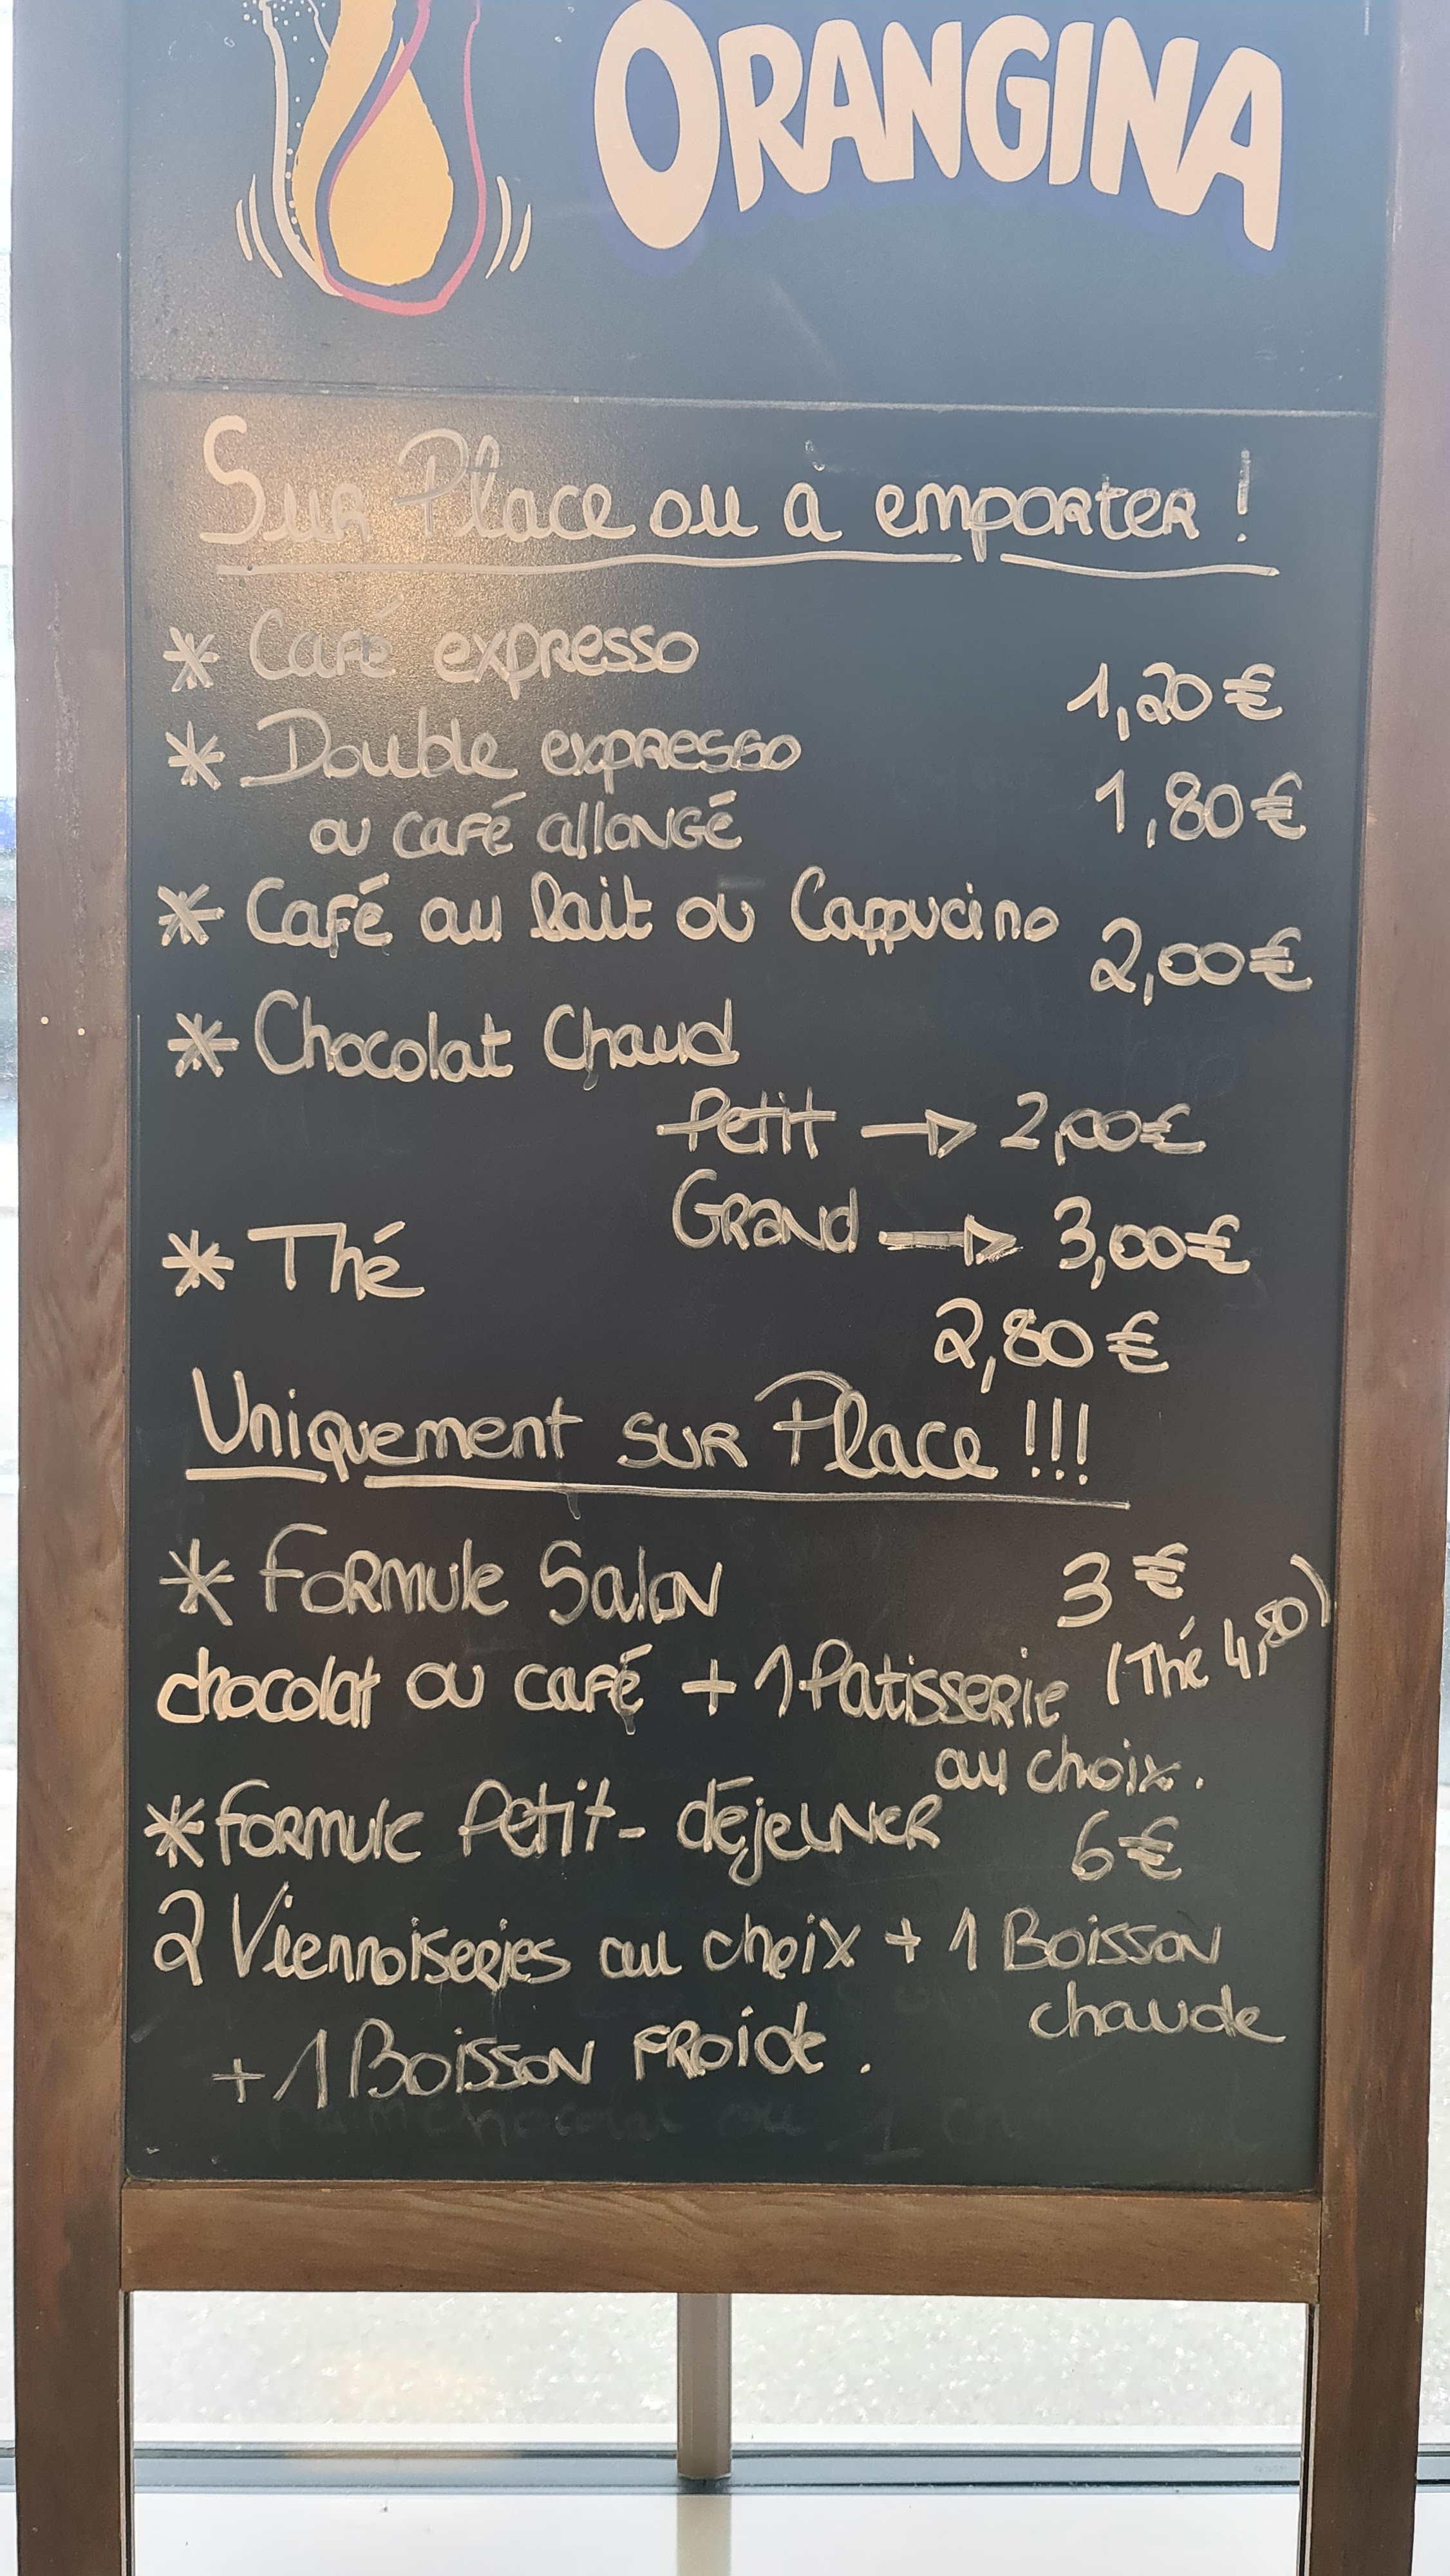 ORANGINA
Sur Place ou à emporter !
* Café expresso 1,20€
* Double expresso
ou café allongé 1,80€
* Café au lait ou Cappucino 2,00€
* Chocolat Chaud
Petit → 2,00€
Grand → 3,00€
* Thé 2,80€
Uniquement sur Place !!!
* Formule Salon 3€
chocolat ou café + 1 Patisserie (Thé 4,50)
au choix.
* Formule Petit-déjeuner 6€
2 Viennoiseries au choix + 1 Boisson
chaude
+ 1 Boisson froide.